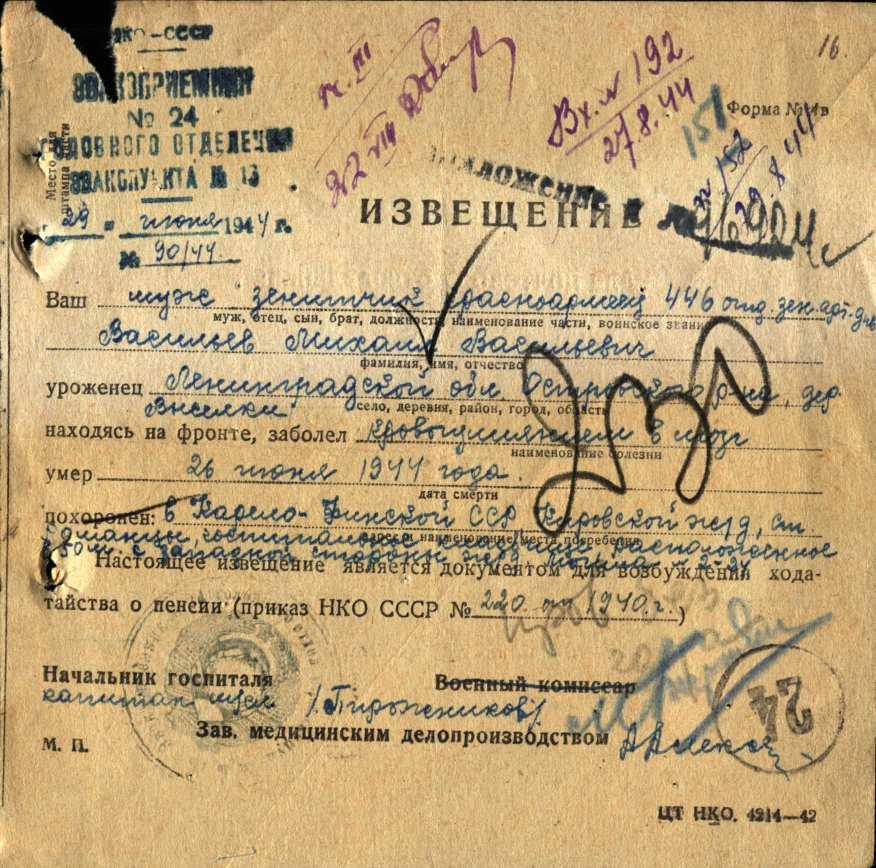 НКО-СССР
ЭВАКОПРИЕМНИК
№ 24
ГОЛОВНОГО ОТДЕЛЕНИЯ
ЭВАКОПУНКТА № 13
Место для
штампа части
„29" июня 1944 г.
№ 90/44
22 VIII
Вх. № 192
27.8.44
16.
151
Форма № 4в
№ 152
29.8.44
ИЗВЕЩЕНИЕ №
Ваш муж зенитчик красноармеец 446 отд. зен. арт. д-на
муж, отец, сын, брат, должность, наименование части, воинское звание
Васильев Михаил Васильевич
фамилия, имя, отчество
уроженец Ленинградской обл. Островского р-на, дер.
Выселки
село, деревня, район, город, область
находясь на фронте, заболел кровоизлиянием в мозг
наименование болезни
умер 26 июня 1944 года.
дата смерти
похоронен: в Карело-Финской ССР Кировской ж/д, ст.
наименование места погребения
западной стороны могила № 2-24
Настоящее извещение является документом для возбуждения хода-
тайства о пенсии (приказ НКО СССР № 220 от 1940 г.)
230
Начальник госпиталя
Военный комиссар
капитан м/сл /Пирожников/
Зав. медицинским делопроизводством
М. П.
24
ЦТ НКО. 4214—42